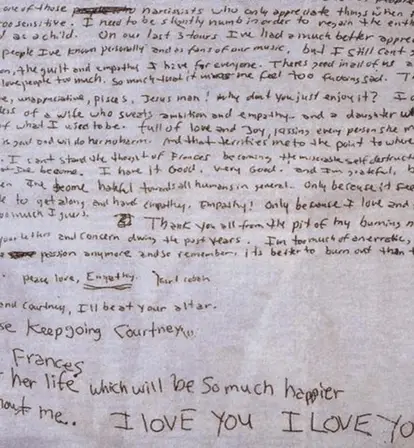 one of those narcissists who only appreciate things when
too sensitive. I need to be slightly numb in order to regain the
d as a child. On our last 3 tours I've had a much better apprec
people I've known personally and as fans of our music, but I still cant
on, the guilt and empathy I have for everyone. Theres good in all of us a
love people too much. so much that it makes me feel too fucking sad. T
e, unappreciative, pisces, Jesus man! why don't you just enjoy it? I
ess of a wife who sweats ambition and empathy and a daughter wh
of what I used to be. full of love and joy, kissing every person she m
is good and will do her no harm. And that terrifies me to the point to where
I can't stand the thought of Frances becoming the miserable self destruct
at I've become. I have it Good, very Good. and I'm grateful, b
en I've become hateful towards all humans in general. Only because it See
le to get along and have empathy. Empathy! Only because I love and
oo much I guess. Thank you all from the pit of my burning n
your letters and concern during the past years. I'm too much of an erratic,
passion anymore and so remember, its better to burn out than t
peace, love, Empathy. Kurt Cobain
and Courtney, I'll be at your altar.
se Keep going Courtney
Frances
her life which will be so much happier
hout me. I LOVE YOU I LOVE YO